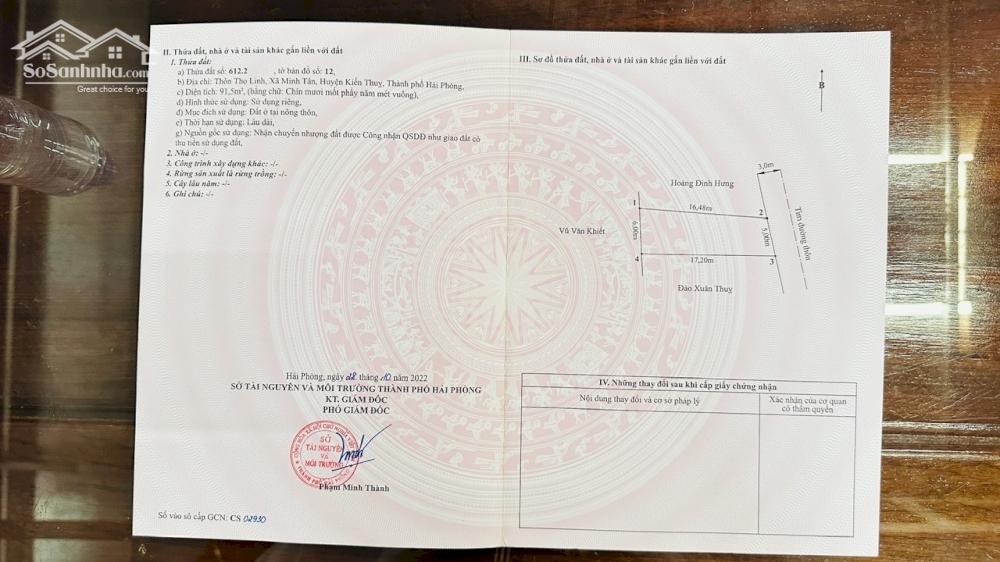 SoSanhnha.com
Great choice for you
II. Thửa đất, nhà ở và tài sản khác gắn liền với đất
1. Thửa đất:
a) Thửa đất số: 612.2 , tờ bản đồ số: 12,
b) Địa chỉ: Thôn Thọ Linh, Xã Minh Tân, Huyện Kiến Thuỵ, Thành phố Hải Phòng,
c) Diện tích: 91,5m², (bằng chữ: Chín mươi mốt phẩy năm mét vuông),
d) Hình thức sử dụng: Sử dụng riêng,
đ) Mục đích sử dụng: Đất ở tại nông thôn,
e) Thời hạn sử dụng: Lâu dài,
g) Nguồn gốc sử dụng: Nhận chuyển nhượng đất được Công nhận QSDĐ như giao đất có
thu tiền sử dụng đất,
2. Nhà ở: -/-
3. Công trình xây dựng khác: -/-
4. Rừng sản xuất là rừng trồng: -/-
5. Cây lâu năm: -/-
6. Ghi chú: -/-
Hải Phòng, ngày 28 tháng 10 năm 2022
SỞ TÀI NGUYÊN VÀ MÔI TRƯỜNG THÀNH PHỐ HẢI PHÒNG
KT. GIÁM ĐỐC
PHÓ GIÁM ĐỐC
SỞ
TÀI NGUYÊN
VÀ
MÔI TRƯỜNG
Phạm Minh Thành
Số vào sổ cấp GCN: CS 02930
III. Sơ đồ thửa đất, nhà ở và tài sản khác gắn liền với đất
B
3,0m
Hoàng Đình Hưng
1
16,48m
2
Tim đường thôn
Vũ Văn Khiết
6,00m
5,00m
4
17,20m
3
Đào Xuân Thuỵ
IV. Những thay đổi sau khi cấp giấy chứng nhận
Nội dung thay đổi và cơ sở pháp lý
Xác nhận của cơ quan
có thẩm quyền